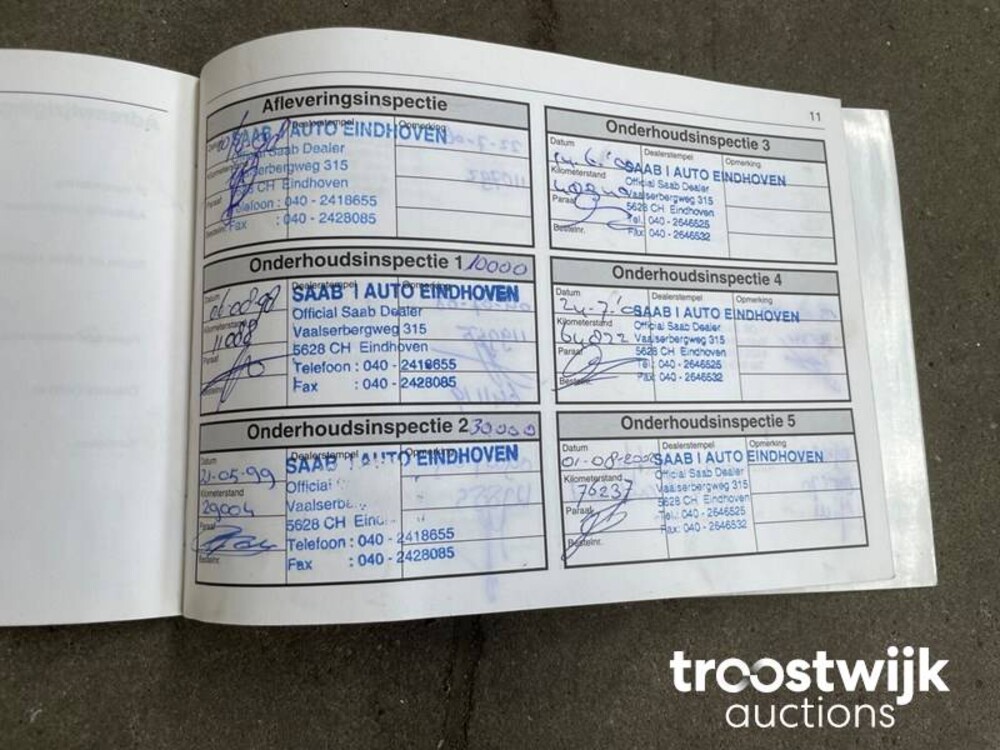 11
Afleveringsinspectie
Dealerstempel Opmerking
SAAB I AUTO EINDHOVEN
Official Saab Dealer
Vaalserbergweg 315
5628 CH Eindhoven
Telefoon : 040 - 2418655
Fax : 040 - 2428085
Kilometerstand
Paraaf
Bestelnr.
Onderhoudsinspectie 1 10000
Datum Dealerstempel Opmerking
01-08-98
SAAB I AUTO EINDHOVEN
Official Saab Dealer
Kilometerstand
11008
Vaalserbergweg 315
5628 CH Eindhoven
Paraaf
Telefoon : 040 - 2418655
Fax : 040 - 2428085
Onderhoudsinspectie 2 30000
Datum Dealerstempel Opmerking
21-05-99
SAAB I AUTO EINDHOVEN
Official
Kilometerstand
29004
Vaalserb
5628 CH Eind
Paraaf
Telefoon : 040 - 2418655
Fax : 040 - 2428085
Bestelnr.
Onderhoudsinspectie 3
Datum Dealerstempel Opmerking
SAAB I AUTO EINDHOVEN
Official Saab Dealer
Kilometerstand
Vaalserbergweg 315
5628 CH Eindhoven
Paraaf
Tel. 040 - 2646525
Fax: 040 - 2646532
Bestelnr.
Onderhoudsinspectie 4
Datum Dealerstempel Opmerking
SAAB I AUTO EINDHOVEN
Official Saab Dealer
Kilometerstand
64822
Vaalserbergweg 315
5628 CH Eindhoven
Paraaf
Tel: 040 - 2646525
Fax: 040 - 2646532
Bestelnr.
Onderhoudsinspectie 5
Datum Dealerstempel Opmerking
01-08-2002
SAAB I AUTO EINDHOVEN
Official Saab Dealer
Kilometerstand
76237
Vaalserbergweg 315
5628 CH Eindhoven
Paraaf
Tel.: 040 - 2646525
Fax: 040 - 2646532
Bestelnr.
troostwijk
auctions